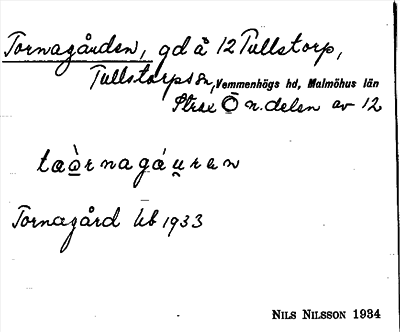 Tornagården, gd å 12 Tullstorp,
Tullstorps sn, Vemmenhögs hd, Malmöhus län
Strax Ö n.delen av 12
tæò̱rnagáu̯ran
Tornagård kb 1933
NILS NILSSON 1934